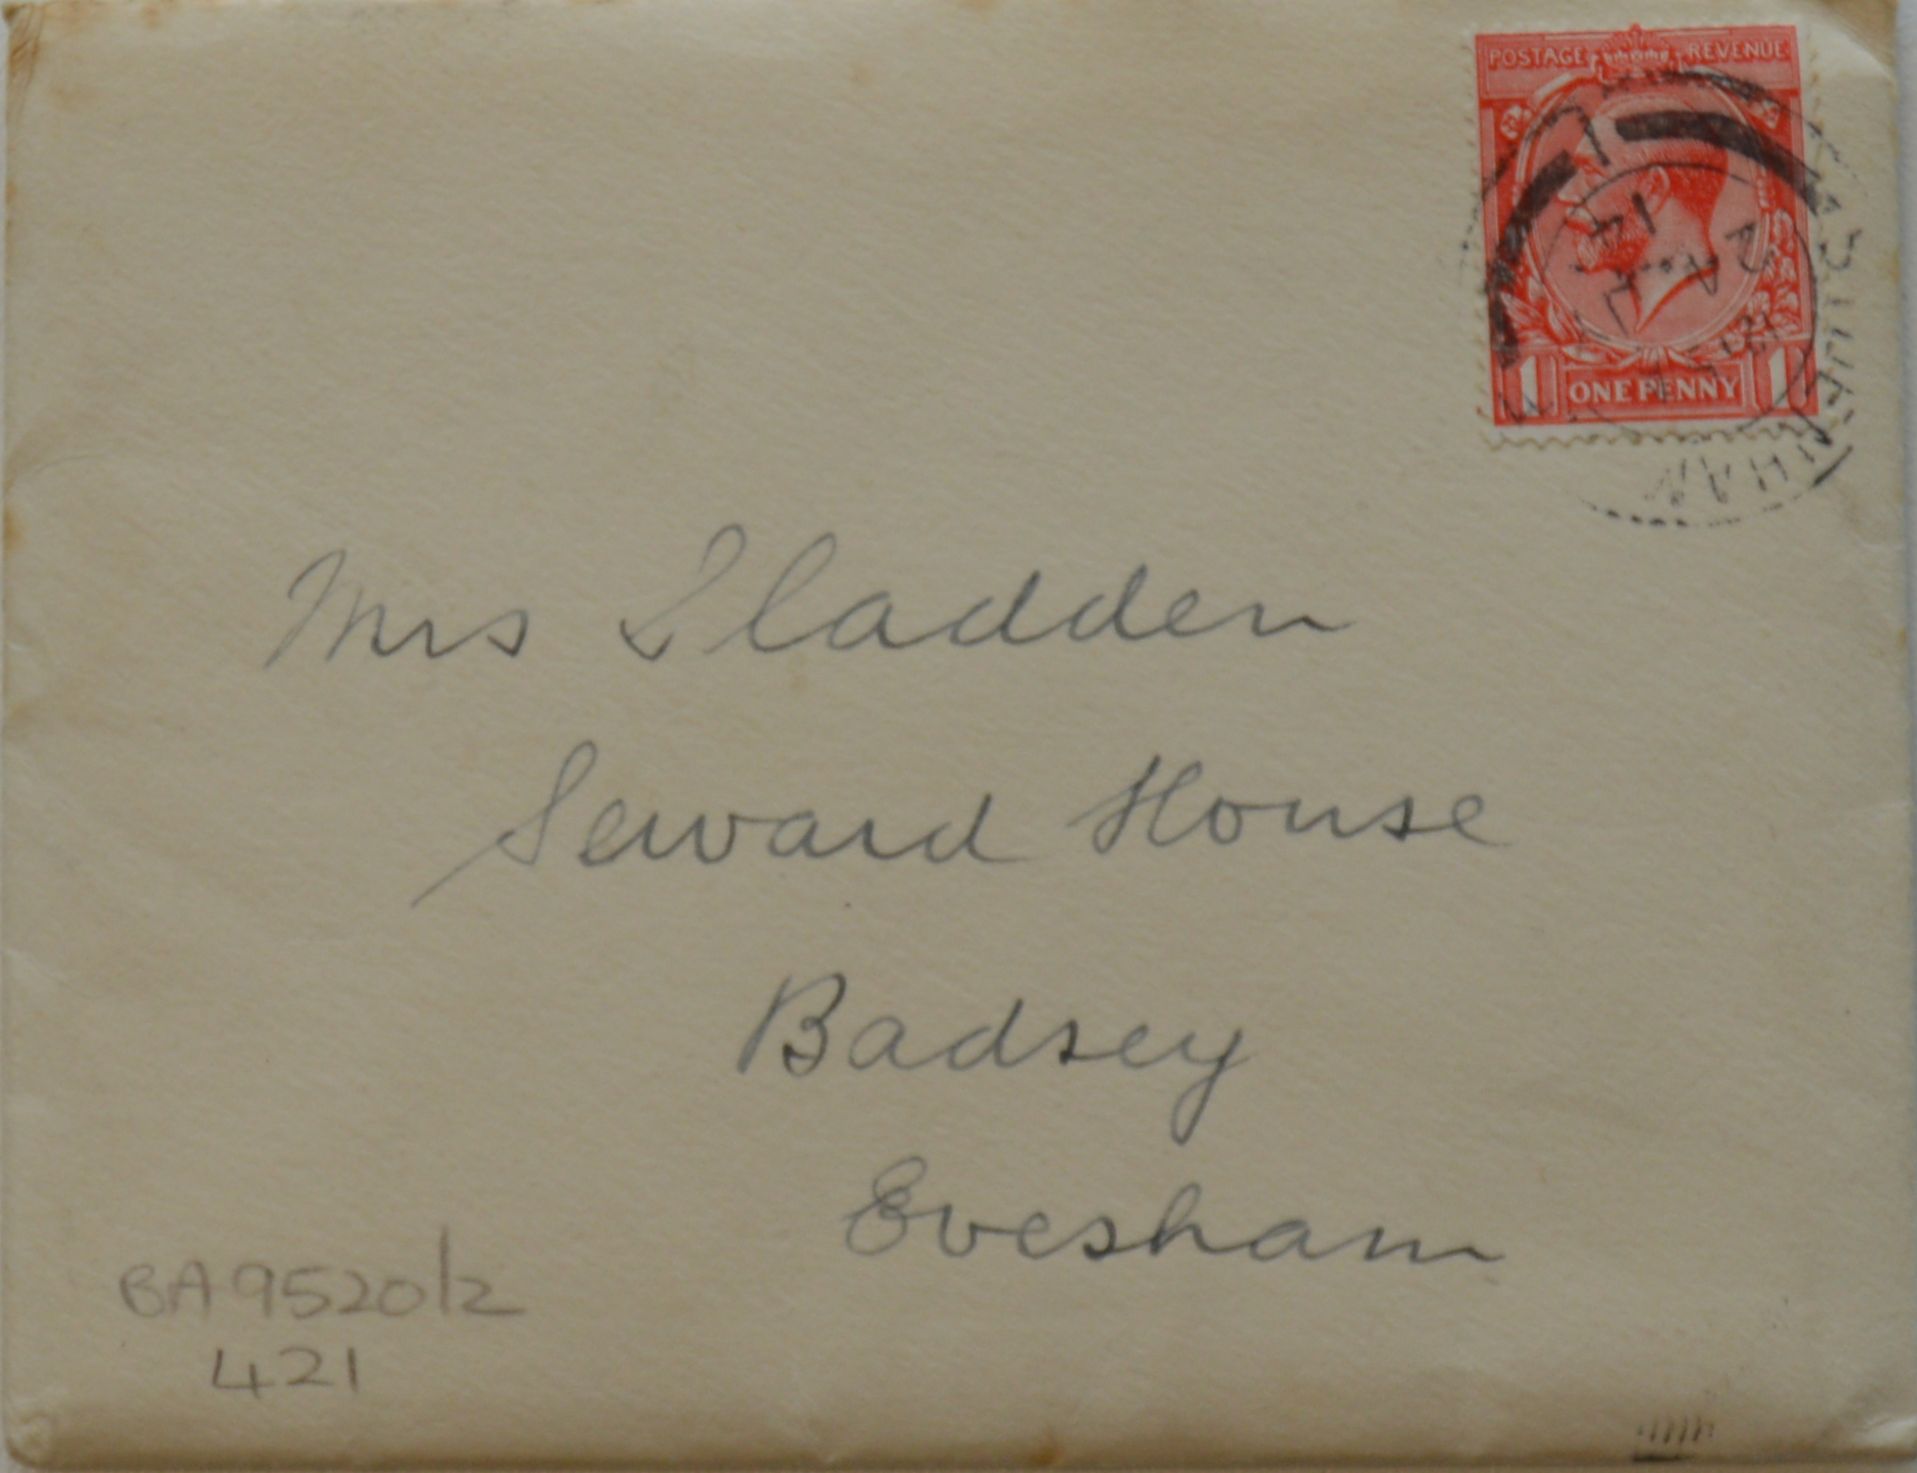 POSTAGE REVENUE
ONE PENNY
1 1
14
Mrs Sladden
Seward House
Badsey
Evesham
BA9520/2
421